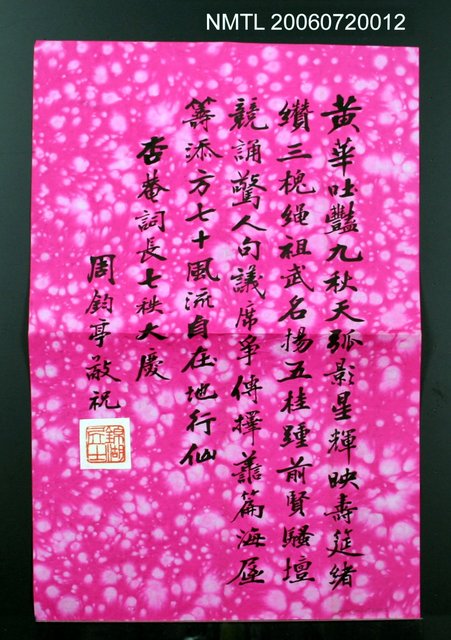 NMTL 20060720012
黃華吐豔九秋天弧影星輝映壽筵緒
纘三槐繩祖武名揚五桂踵前賢騷壇
競誦驚人句議席爭傳擇篇海屋
籌添方七十風流自在地行仙
杏菴詞長七秩大慶
周鈞亭敬祝